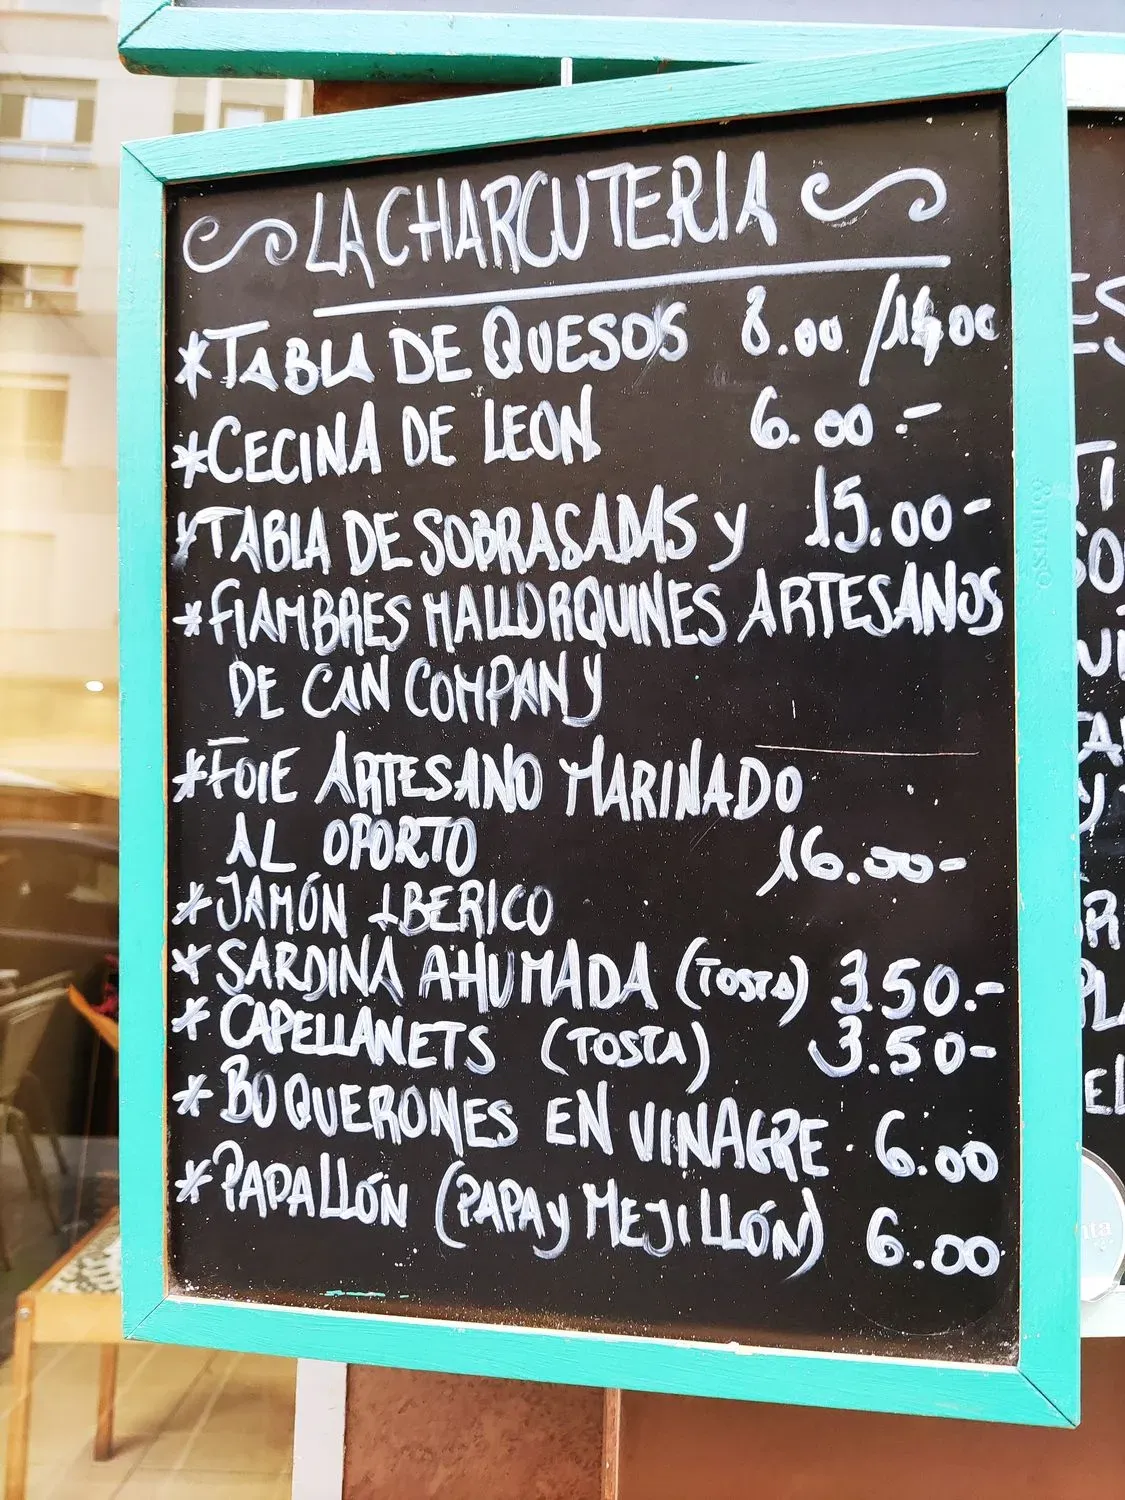 LA CHARCUTERIA
*TABLA DE QUESOS 8.00 /14,00
*CECINA DE LEON 6.00.-
*TABLA DE SOBRASADAS y 15.00-
*FIAMBRES MALLORQUINES ARTESANOS
DE CAN COMPANY
*FOIE ARTESANO MARINADO
AL OPORTO 16.00-
*JAMÓN IBERICO
*SARDINA AHUMADA (TOSTA) 3.50.-
*CAPELLANETS (TOSTA) 3.50-
*BOQUERONES EN VINAGRE. 6.00
*PAPALLÓN (PAPA y MEJILLÓN) 6.00